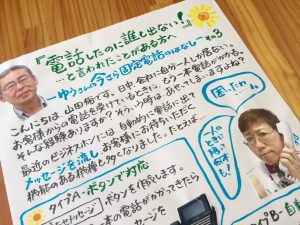 『電話したのに誰も出ない!』
…と言われたことがある方へ
ゆうさんの今さら固定電話のはなし
こんにちは、山田裕です。日中、会社に自分一人しか居ない。
お客様からの電話を受けているときに、もう一本電話がかかる。
そんな経験ありますか?そういう時は、
最近のビジネスホンには、自動的に電話に出て
メッセージを流し、お客様にお待ちいただく
機能のある機種も多くなりました。たとえば…
困ったわ…
一人のときに限って何本も!
タイプA-ボタンで対応
ボタンを作成します。
本の電話がかかってきたら
メッセージを
タイプB-自動